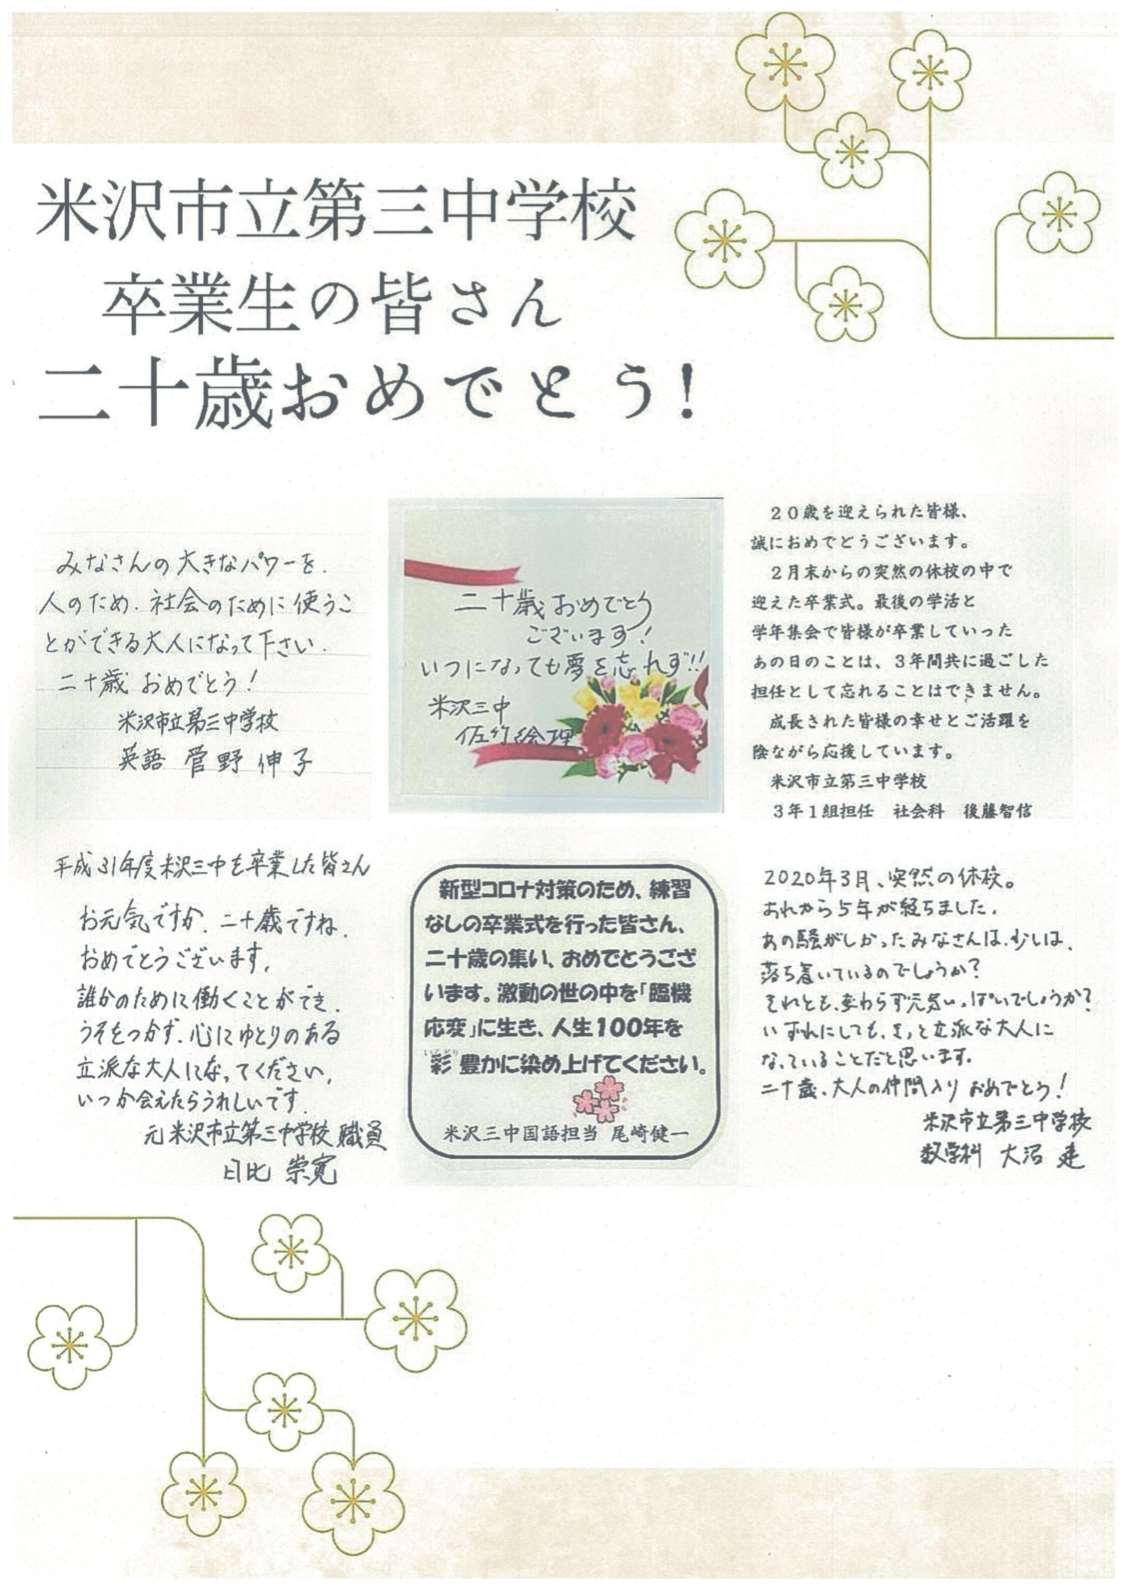 米沢市立第三中学校
卒業生の皆さん
二十歳おめでとう!
みなさんの大きなパワーを、
人のため、社会のために使うこ
とができる大人になって下さい。
二十歳 おめでとう!
米沢市立第三中学校
英語 菅野伸子
二十歳おめでとう
ございます!
いつになっても夢を忘れず!!
米沢三中
佐竹絵理
20歳を迎えられた皆様、
誠におめでとうございます。
2月末からの突然の休校の中で
迎えた卒業式。最後の学活と
学年集会で皆様が卒業していった
あの日のことは、3年間共に過ごした
担任として忘れることはできません。
成長された皆様の幸せとご活躍を
陰ながら応援しています。
米沢市立第三中学校
3年1組担任 社会科 後藤智信
平成31年度米沢三中を卒業した皆さん
お元気ですか。二十歳ですね。
おめでとうございます。
誰かのために働くことができ、
うそをつかず、心にゆとりのある
立派な大人になってください。
いつか会えたらうれしいです。
元米沢市立第三中学校職員
日比 崇寛
新型コロナ対策のため、練習
なしの卒業式を行った皆さん、
二十歳の集い、おめでとうござ
います。激動の世の中を「臨機
応変」に生き、人生100年を
彩豊かに染め上げてください。
米沢三中国語担当 尾崎健一
2020年3月、突然の休校。
あれから5年が経ちました。
あの騒がしかったみなさんは、少しは、
落ち着いているのでしょうか?
それとも、変わらず元気いっぱいでしょうか?
いずれにしても、きっと立派な大人に
なっていることだと思います。
二十歳、大人の仲間入りおめでとう!
米沢市立第三中学校
数学科 大沼 建